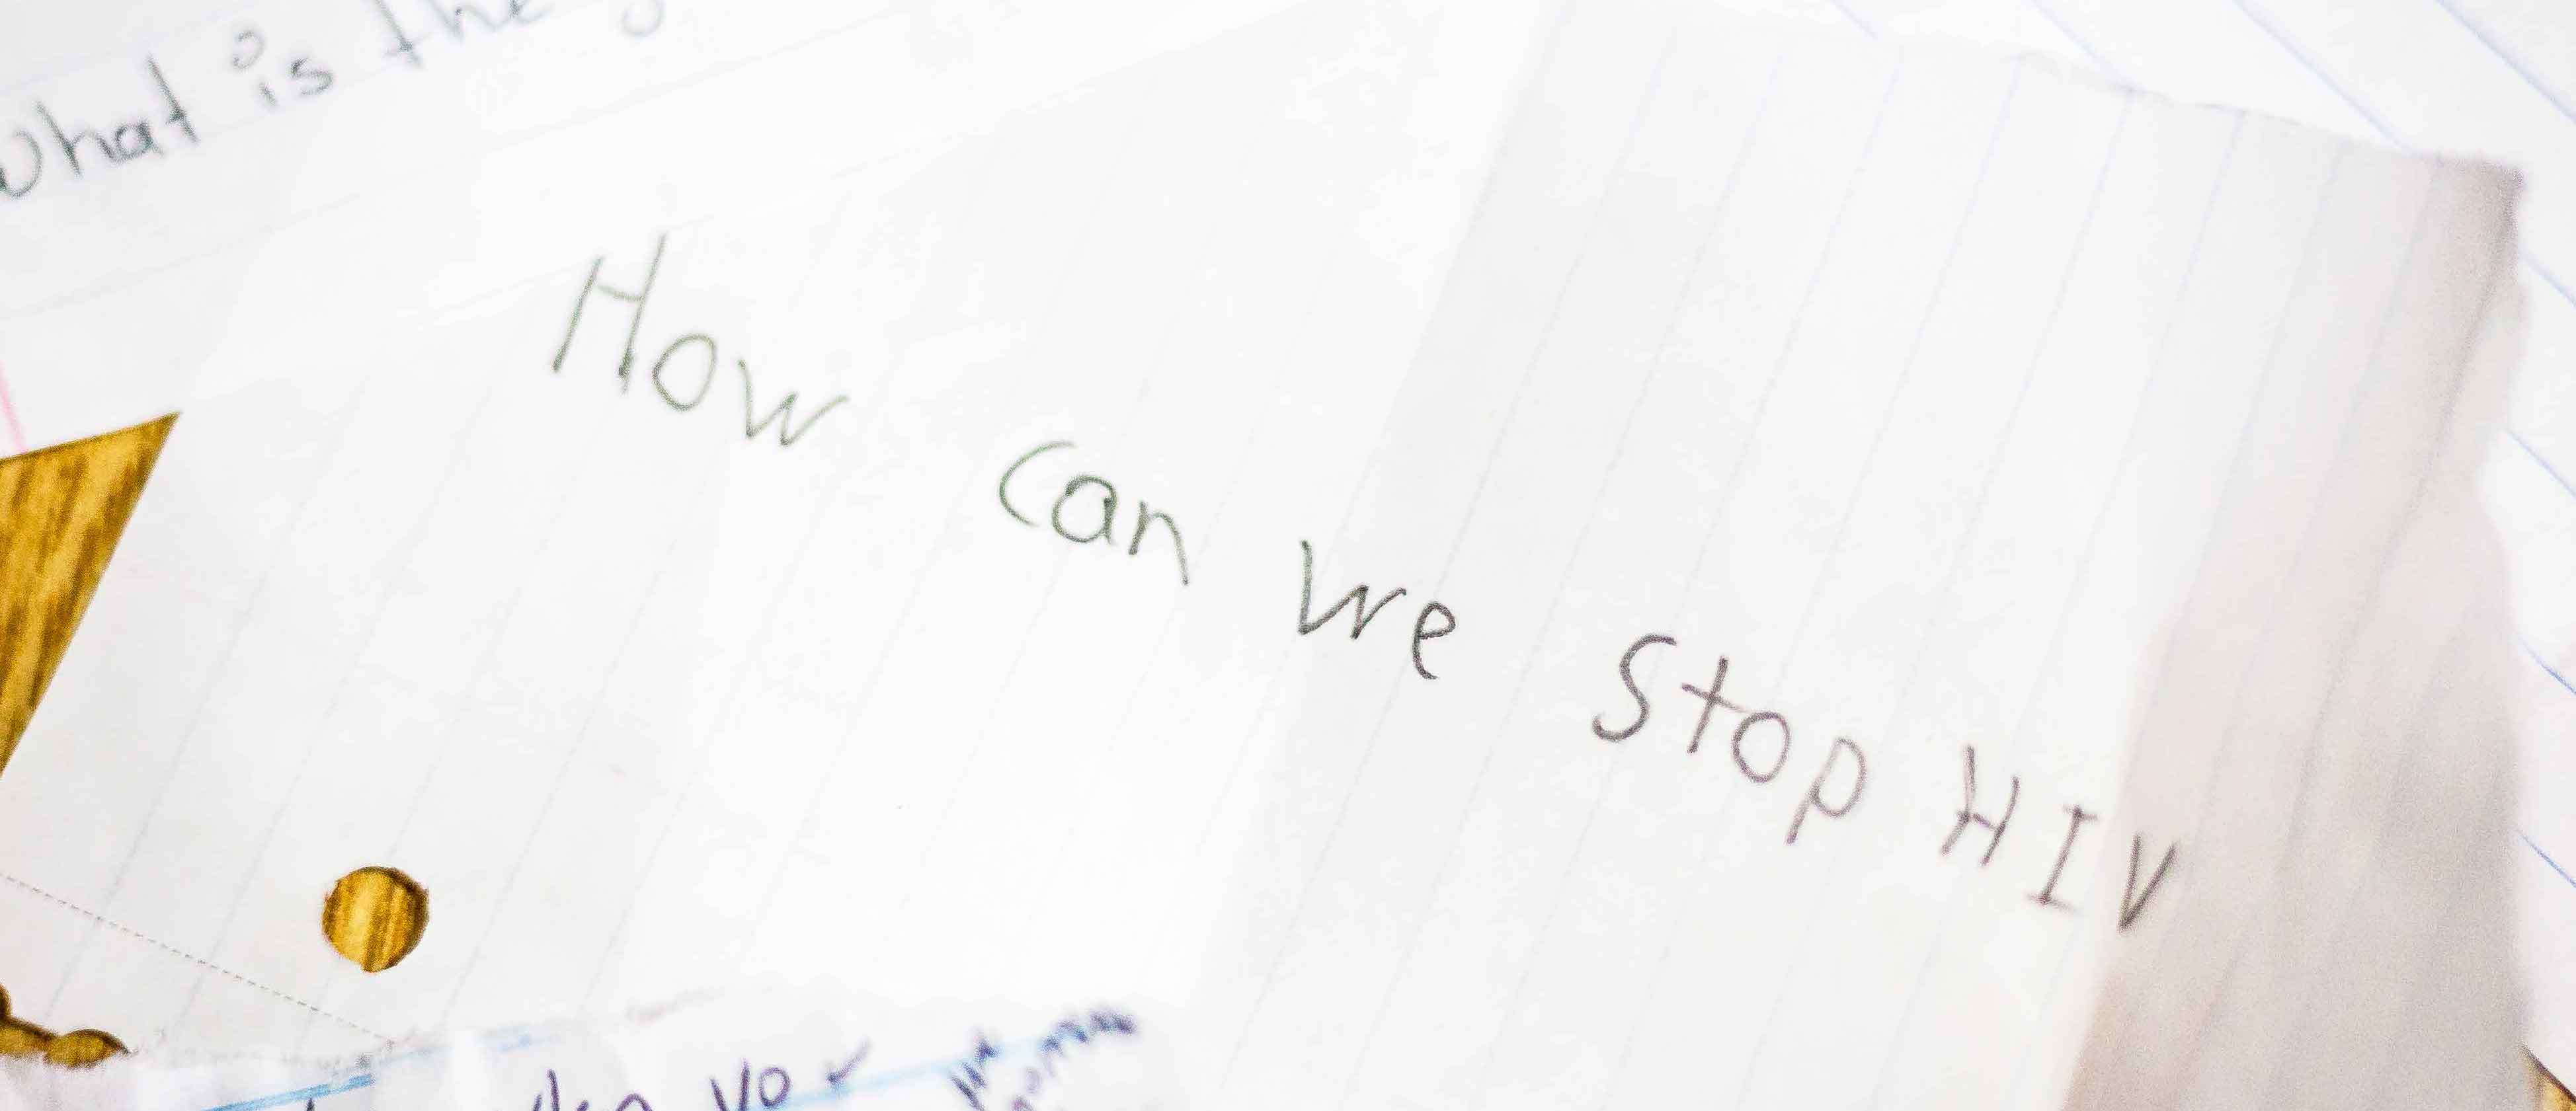 what is the
How can we stop HIV